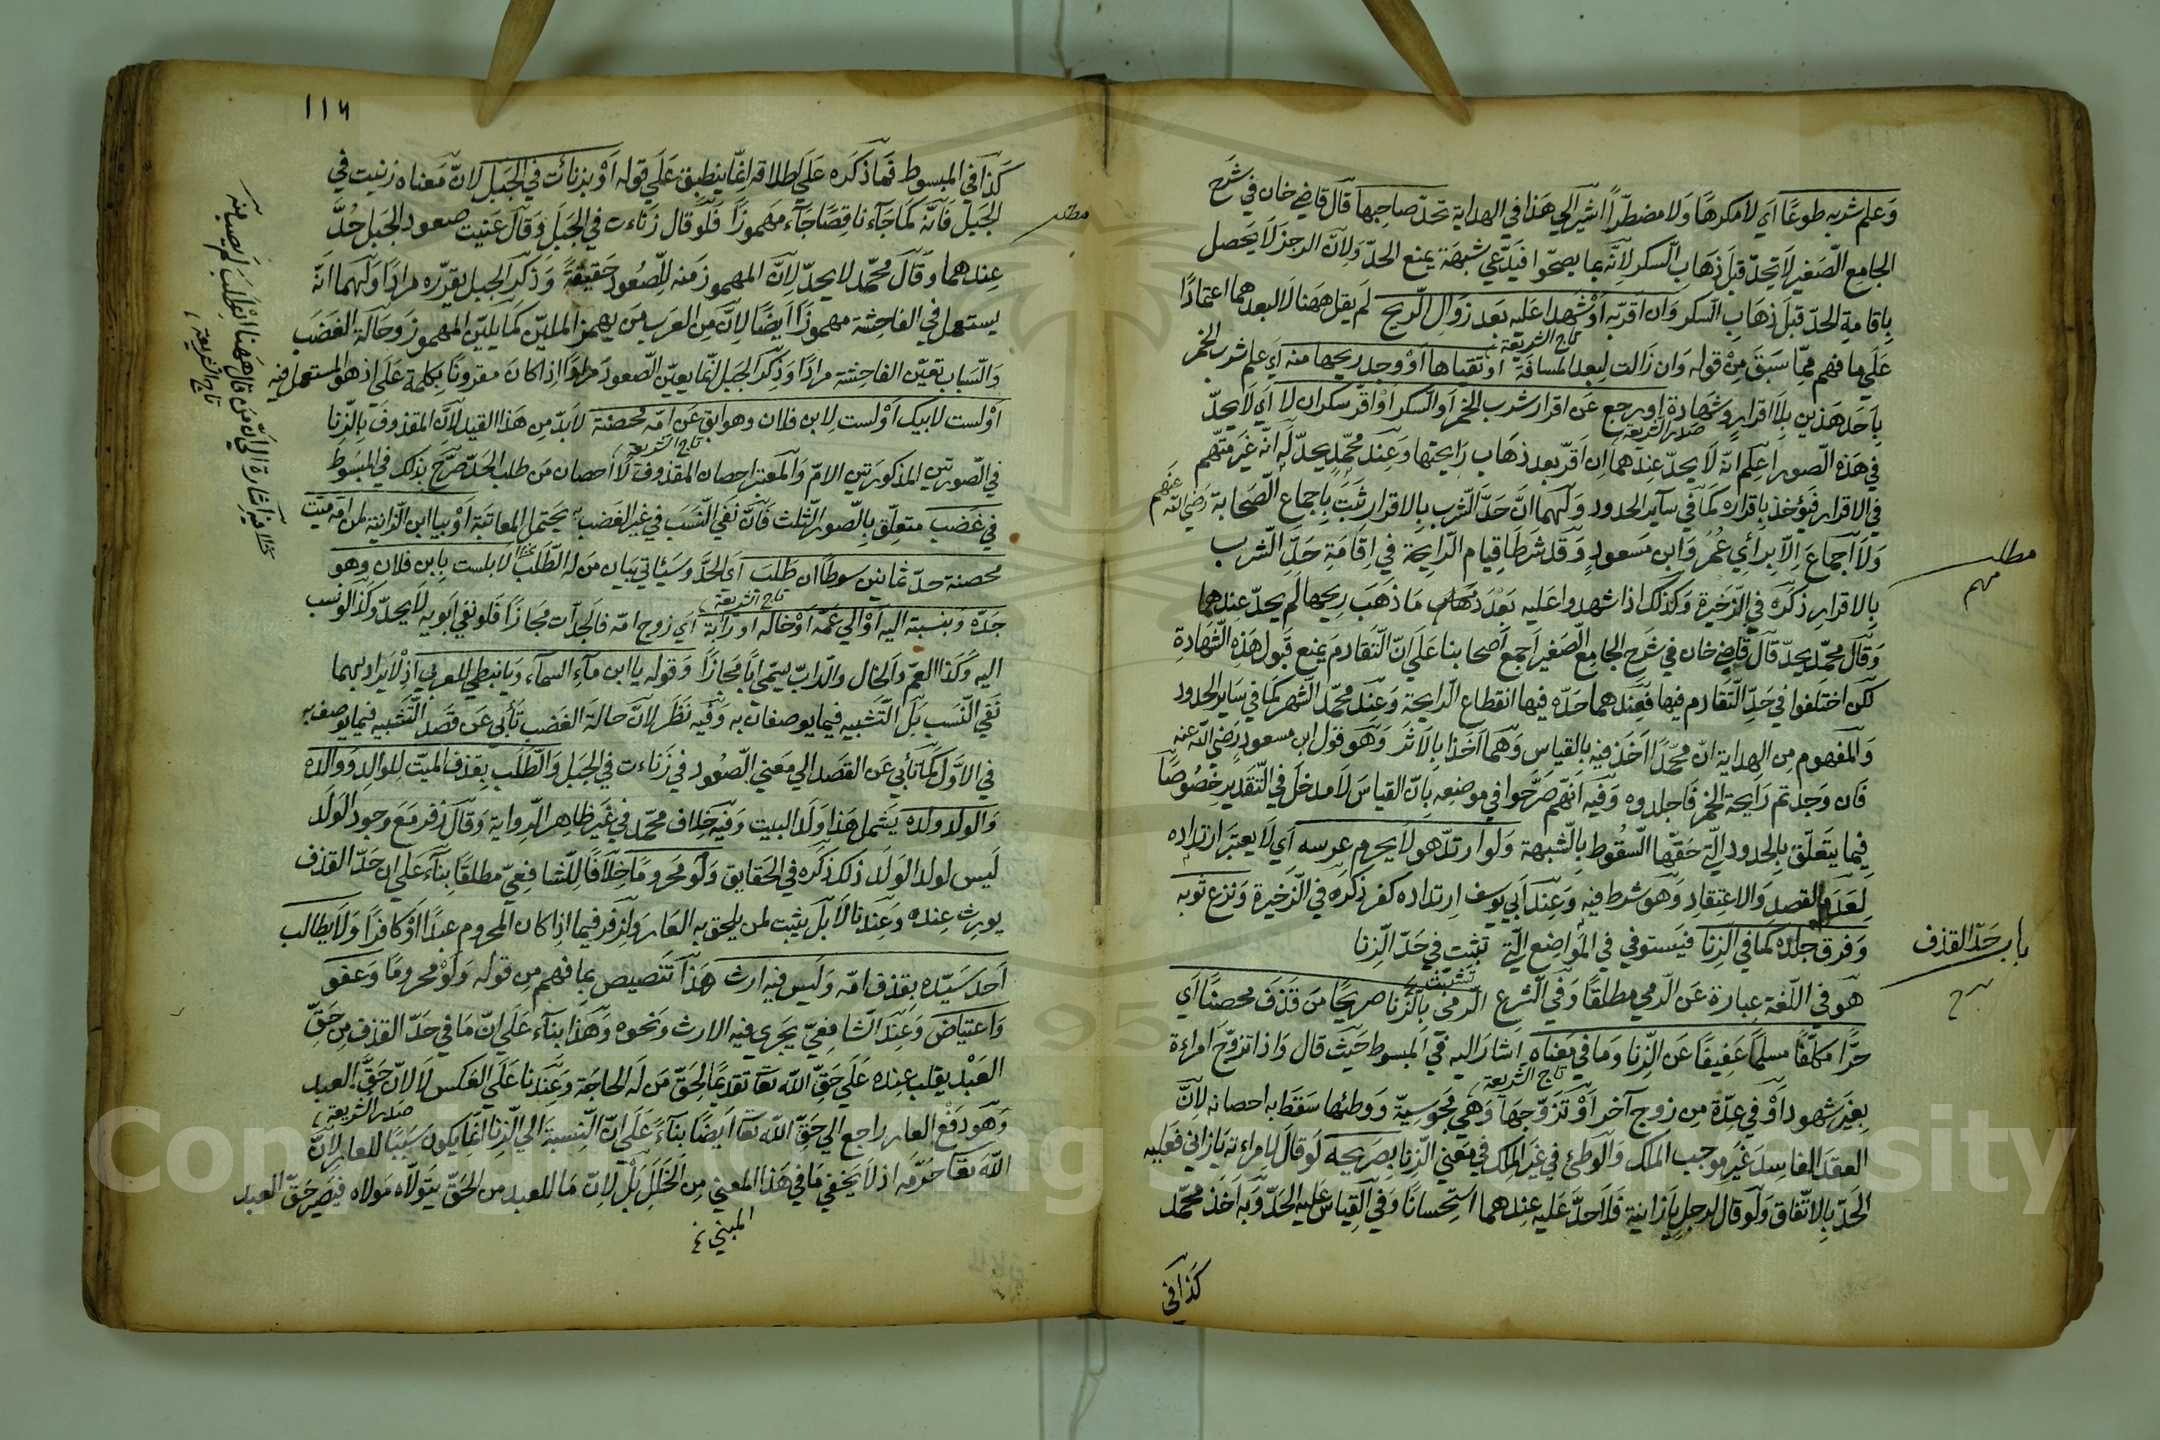 وعلم شربه طوعا اي لا مكرها ولا مضطرا اشير الي هذا في الهداية تحد صاحبها قال قاضي خان في شرح
الجامع الصغير لا يحد قبل ذهاب السكر لانه بما يصحوا فيدعي شبهة يمنع الحد ولان الزجر لا يحصل
باقامة الحد قبل ذهاب السكر وان اقر به او شهدا عليه بعد زوال الريح لم يقل ههنا لا لبعدهما اعتمادا
علي ما فهم مما سبق من قوله وان زالت لبعد المسافة او تقياها او وجد ريحها منه اي علم شرب الخمر
تاج الشريعة
باحد هذين بلا اقرار وشهادة او رجع عن اقرار شرب الخمر او السكر او اقر سكران لا اي لا يحد
صدر الشريعة
في هذه الصور اعلم انه لا يحد عندهما ان اقر بعد ذهاب رايحتها وعند محمد يحد له انه غير متهم
في الاقرار فيؤخذ باقراره كما في ساير الحدود ولهما ان حد الشرب بالاقرار ثبت باجماع الصحابة رضي الله عنهم
ولا اجماع الا برأي عمر وابن مسعود وقد شرطا قيام الرايحة في اقامة حد الشرب
بالاقرار ذكره في الذخيرة وكذلك اذا شهدوا عليه بعد ذهاب ما ذهب ريحها لم يحد عندهما
وقال محمد يحد قال قاضي خان في شرح الجامع الصغير اجمع اصحابنا علي ان التقادم يمنع قبول هذه الشهادة
لكن اختلفوا في حد التقادم فيها فعندهما حده فيها انقطاع الرايحة وعند محمد الشهر كما في ساير الحدود
والمفهوم من الهداية ان محمدا اخذ فيه بالقياس وهما اخذا بالاثر وهو قول ابن مسعود رضي الله عنه
فان وجدتم رايحة الخمر فاجلدوه وفيه انهم صرحوا في موضعه بان القياس لا مدخل في التقدير خصوصا
فيما يتعلق بالحدود التي حقها السقوط بالشبهة ولو ارتد هو لا يحرم عرسه اي لا يعتبر ارتداده
لعدم القصد والاعتقاد وهو شرط فيه وعند ابي يوسف ارتداده كفر ذكره في الذخيرة ونزع ثوبه
وفرق جلده كما في الزنا فيستوفي في المواضع التي تثبت في حد الزنا
هو في اللغة عبارة عن الرمي مطلقا وفي الشرع الرمي بالزنا صريحا من قذف محصنا اي
حرا مكلفا مسلما عفيفا عن الزنا وما في معناه اشار اليه في المبسوط حيث قال واذا تزوج امراءة
تاج الشريعة
بغير شهود او في عدة من زوج آخر او تزوجها وهي مجوسية ووطئها سقط به احصانه لان
العقد الفاسد غير موجب الملك والوطئ في غير الملك في معني الزنا بصريحه لو قال لامراءته يا زاني فعليه
الحد بالاتفاق ولو قال لرجل يا زانية فلا حد عليه عندهما استحسانا وفي القياس عليه الحد وبه اخذ محمد
كذا في
مطلب مهم
باب حد القذف
١١٦
كذا في المبسوط فما ذكره علي اطلاقه انما ينطبق علي قوله او بزنأت في الجبل لان معناه زنيت في
الجبل فانه كما جآء ناقصا جآء مهموزا فلو قال زناءت في الجبل وقال عنيت صعود الجبل حد
عندهما وقال محمد لا يحد لان المهموز منه للصعود حقيقة وذكر الجبل يقرره مرادا ولهما انه
يستعمل في الفاحشة مهموزا ايضا لان من العرب من يهمز الملين كما يلين المهموز وحالة الغضب
والسباب تعين الفاحشة مرادا وذكر الجبل انما يعين الصعود مرادا اذا كان مقرونا بكلمة علي اذ هو المستعمل فيه
او لست لابيك او لست لابن فلان وهو ابق عن امه محصنة لا بد من هذا القيد لان المقذوف بالزنا
تاج الشريعة
في الصورتين المذكورتين الام والمعتبر احصان المقذوفة لا احصان من طلب الحد صرح بذلك في المبسوط
في غضب متعلق بالصور الثلث فان نفي النسب في غير الغضب يحتمل المعاتبة او بيا ابن الزانية لمن امه ميتت
محصنة حد ثمانين سوطا ان طلب اي الحد وسيئاتي بيان من له الطلب لا بلست بابن فلان وهو
تاج الشريعة
جده وبنسبته اليه او الي عمه او خاله او رابه اي زوج امه فالجد اب مجازا فلو نفي ابويه لا يحد وكذا لو نسب
اليه وكذا العم والخال والراب يسمي ابا مجازا وقوله يا ابن مآء السمآء ويا نبطي للعربي اذ لا يراد بهما
نفي النسب بل التشبيه فيما يوصفان به وفيه نظر لان حالة الغضب تأبي عن قصد التشبيه فيما يوصف به
في الاول كما تأبي عن القصد الي معني الصعود في زناءت في الجبل والطلب بقذف الميت للوالد ووالده
والولد وولده يشمل هذا ولد البنت وفيه خلاف محمد في غير ظاهر الرواية وقال زفر مع وجود الولد
ليس لولد الولد ذلك ذكره في الحقايق ولو محروما خلافا للشافعي مطلقا بنآء علي ان حد القذف
يورث عنده وعندنا لا بل يثبت لمن يلحق به العار ولزفر فيما اذا كان المحروم عبدا او كافرا ولا يطالب
احد سيده بقذف امه وليس فيه ارث هذا تنصيص بما فهم من قوله ولو محروما وعفو
واعتياض وعند الشافعي يجري فيه الارث ونحوه وهذا بنآء علي ان ما في حد القذف من حق
العبد يغلب عنده علي حق الله تعا تقديما لحق من له الحاجة وعندنا علي العكس لا لان حق العبد
صدر الشريعة
وهو دفع العار راجع الي حق الله تعا ايضا بنآء علي ان النسبة الي الزنا انما يكون سببا للعار لان
الله تعا حرمه اذ لا يخفي ما في هذا المعني من الخلل بل لان ما للعبد من الحق يتولاه مولاه فيصير حق العبد
المبني
مطلب
تاج الشريعة
Copyright © King Saud University